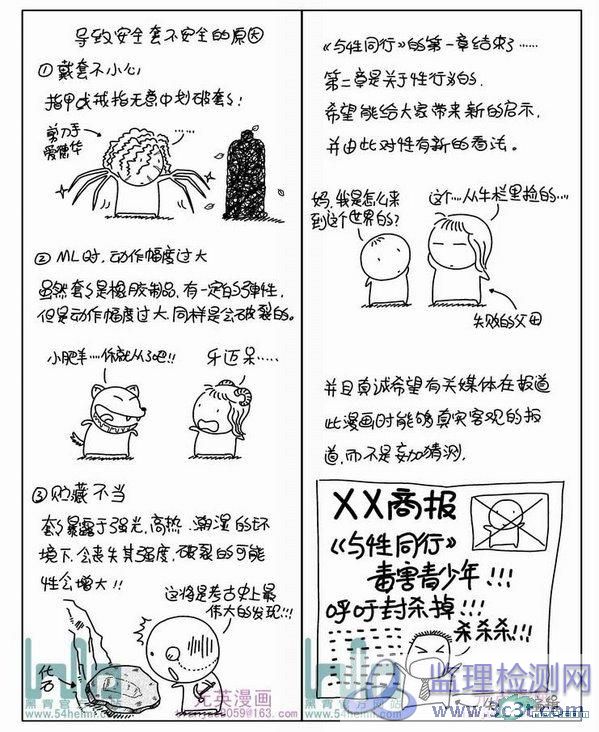 导致安全套不安全的原因
① 戴套不小心
指甲或戒指无意中划破套套!
剪刀手
爱德华
……
② ML时,动作幅度过大
虽然套套是橡胶制品,有一定的弹性,
但是动作幅度过大,同样是会破裂的。
小肥羊……你就从了吧!!
牙迈呆……
③ 贮藏不当
套套暴露于强光,高热,潮湿的环
境下,会丧失其强度,破裂的可能
性会增大!!
这将是考古史上最
伟大的发现!!!
化石
黑背官
www.54heihei.com
《与性同行》的第一章结束了……
第二章是关于性行为的,
希望能给大家带来新的启示,
并由此对性有新的看法。
妈,我是怎么来
到这个世界的?
这个……从牛栏里捡的……
失败的父母
并且真诚希望有关媒体在报道
此漫画时能够真实客观的报
道,而不是妄加猜测,
XX商报
《与性同行》
毒害青少年!!!
呼吁封杀掉!!!
杀杀杀!!!
元英漫画
8059@163.com
黑背官方网站
www.54heihei.com
监理检测网
www.3c3t.com